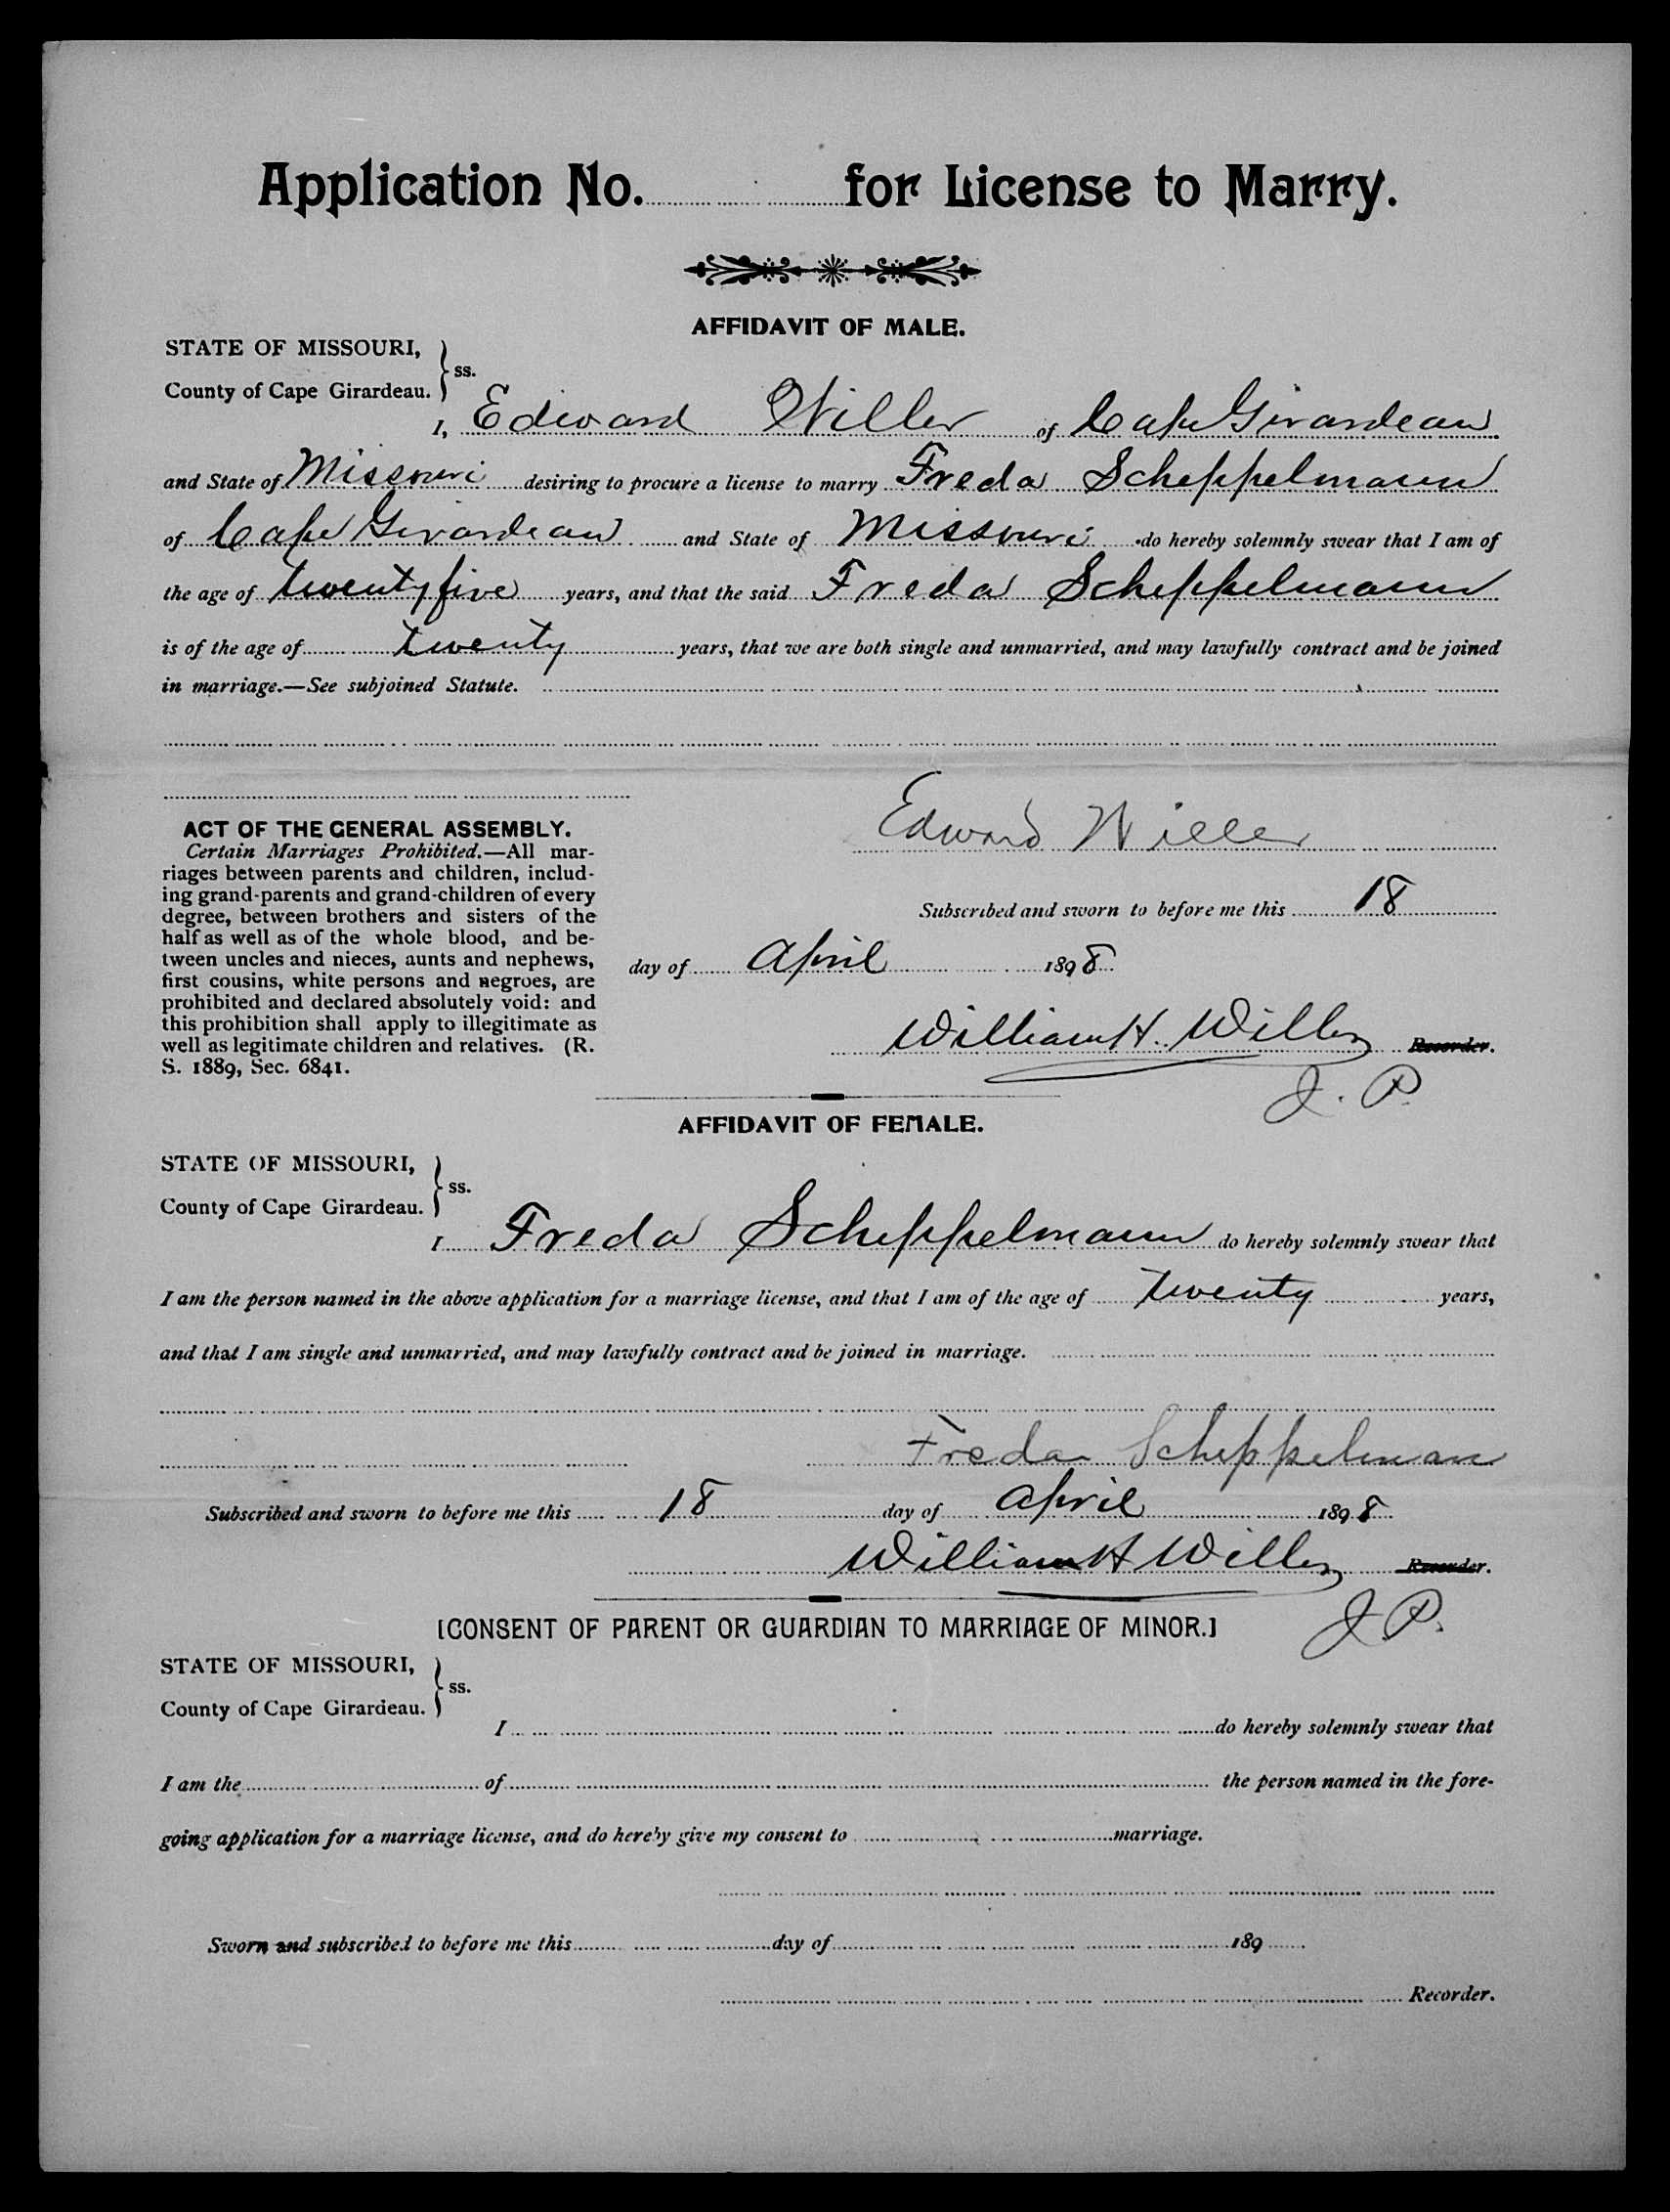 Application No. for License to Marry.
AFFIDAVIT OF MALE.
STATE OF MISSOURI,
County of Cape Girardeau. } ss.
I, Edward Willer of Cape Girardeau
and State of Missouri desiring to procure a license to marry Freda Scheppelmann
of Cape Girardeau and State of Missouri do hereby solemnly swear that I am of
the age of twenty five years, and that the said Freda Scheppelmann
is of the age of twenty years, that we are both single and unmarried, and may lawfully contract and be joined
in marriage.—See subjoined Statute.
Edward Willer
Subscribed and sworn to before me this 18
day of April 1898
William H. Willer Recorder.
J. P.
ACT OF THE GENERAL ASSEMBLY.
Certain Marriages Prohibited.—All mar-
riages between parents and children, includ-
ing grand-parents and grand-children of every
degree, between brothers and sisters of the
half as well as of the whole blood, and be-
tween uncles and nieces, aunts and nephews,
first cousins, white persons and negroes, are
prohibited and declared absolutely void: and
this prohibition shall apply to illegitimate as
well as legitimate children and relatives. (R.
S. 1889, Sec. 6841.
AFFIDAVIT OF FEMALE.
STATE OF MISSOURI,
County of Cape Girardeau. } ss.
I Freda Scheppelmann do hereby solemnly swear that
I am the person named in the above application for a marriage license, and that I am of the age of twenty years,
and that I am single and unmarried, and may lawfully contract and be joined in marriage.
Freda Scheppelmann
Subscribed and sworn to before me this 18 day of April 1898
William H Willer Recorder.
J. P.
[CONSENT OF PARENT OR GUARDIAN TO MARRIAGE OF MINOR.]
STATE OF MISSOURI,
County of Cape Girardeau. } ss.
I do hereby solemnly swear that
I am the of the person named in the fore-
going application for a marriage license, and do hereby give my consent to marriage.
Sworn and subscribed to before me this day of 189
Recorder.